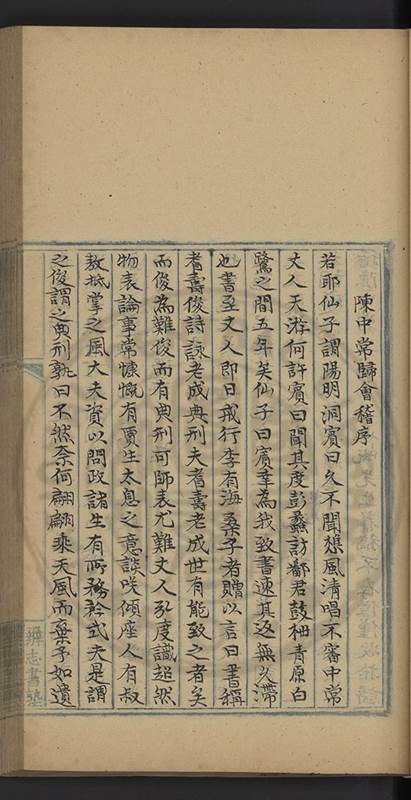 陳中常歸會稽序
若耶仙子謂陽明洞賓曰久不聞樵風清唱不審中常
丈人天游何許賓曰聞其度彭蠡訪鄱君鼓枻青原白
鷺之間五年矣仙子曰賓幸為我致書速其返無久滯
也書至丈人即日戒行李有海桑子者贈以言曰書稱
耇壽俊詩詠老成典刑夫耇壽老成世有能致之者矣
而俊為難俊而有典刑可師表尤難丈人弘度識超然
物表論事常慷慨有賈生太息之意談咲傾座人有叔
敖抵掌之風大夫資以問政諸生有所務矜式夫是謂
之俊謂之典刑孰曰不然柰何翩翩乘天風而棄予如遺
辨志書塾